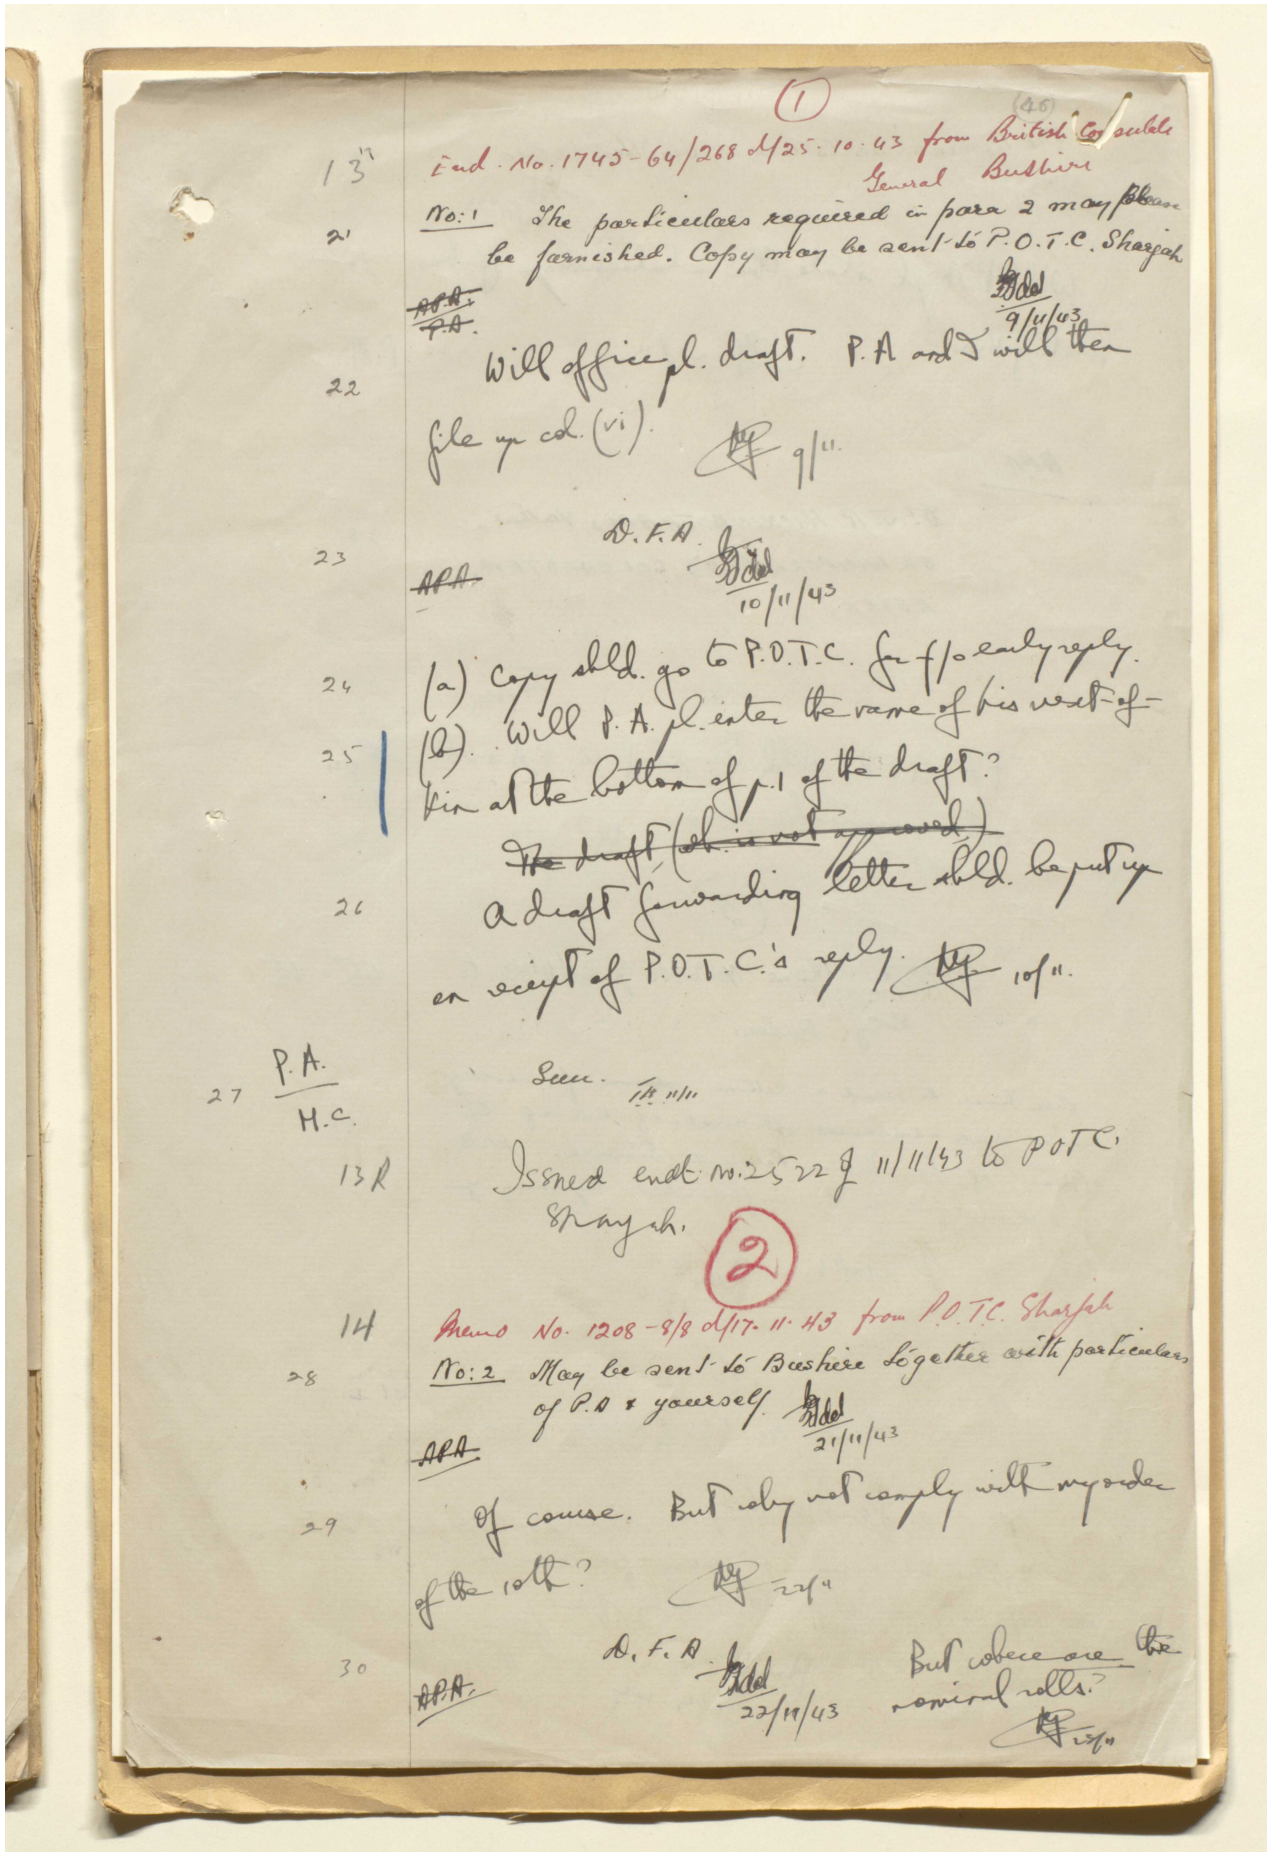 1
(46)
13
End. No. 1745-64/268 d/25-10-43 from British Consulate
General Bushire
21
No: 1 The particulars required in para 2 may please
be furnished. Copy may be sent to P.O.T.C. Sharjah
A.P.A.
P.A.
9/11/43
22
Will office pl. draft. P.A and I will then
file up col. (vi).
9/11.
23
D.F.A.
A.P.A.
10/11/43
24
(a) Copy shld. go to P.O.T.C. for f/o early reply.
25
(b). Will P.A. pl. enter the name of his next-of-
kin at the bottom of p.1 of the draft?
The draft (wh. is not approved)
26
A draft forwarding letter shld. be put up
on receipt of P.O.T.C.'s reply.
10/11.
27
P.A.
H.C.
Seen.
11/11
13R
Issued endt. no: 2522 of 11/11/43 to POTC.
Sharjah.
2
14
Memo No. 1208-8/8 d/17-11-43 from P.O.T.C. Sharjah
28
No: 2 May be sent to Bushire together with particulars
of P.A & yourself.
21/11/43
APA
29
Of course. But why not comply with my order
of the 10th?
22/11
30
D.F.A.
A.P.A.
22/11/43
But where are the
nominal rolls?